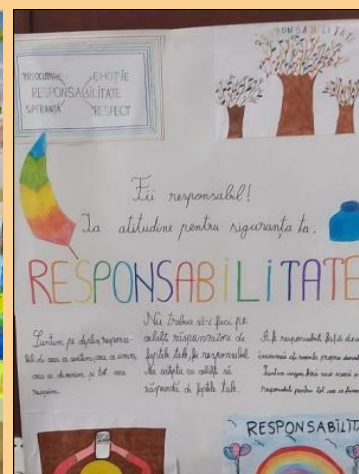 PREOCUPARE EMOȚIE
RESPONSABILITATE
SPERANȚĂ RESPECT
RESPONSABILITATE
Fii responsabil!
Ia atitudine pentru siguranța ta.
RESPONSABILITATE
Suntem pe deplin responsa-
bili de ceea ce suntem, ceea ce avem,
ceea ce devenim și tot ceea
Nu trebuie să-i faci pe
ceilalți răspunzători de
faptele tale, fii responsabil.
Nu aștepta ca ceilalți să
răspundă de faptele tale.
A fi responsabil față de
înseamnă
responsabili pentru tot ceea ce
RESPONSABILITA